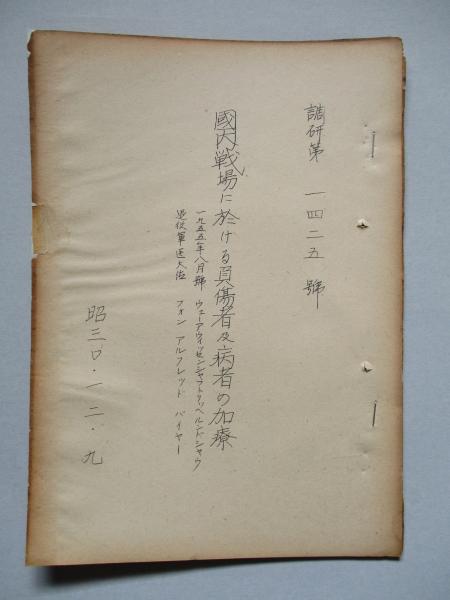 調研第 一四二五 號
國内戦場に於ける負傷者及病者の加療
一九五五年八月號 ウェーアウィッセンシャフトリッヘルンドシャウ
退役軍医大佐 フォン アルフレッド バイヤー
昭三〇・一二・九